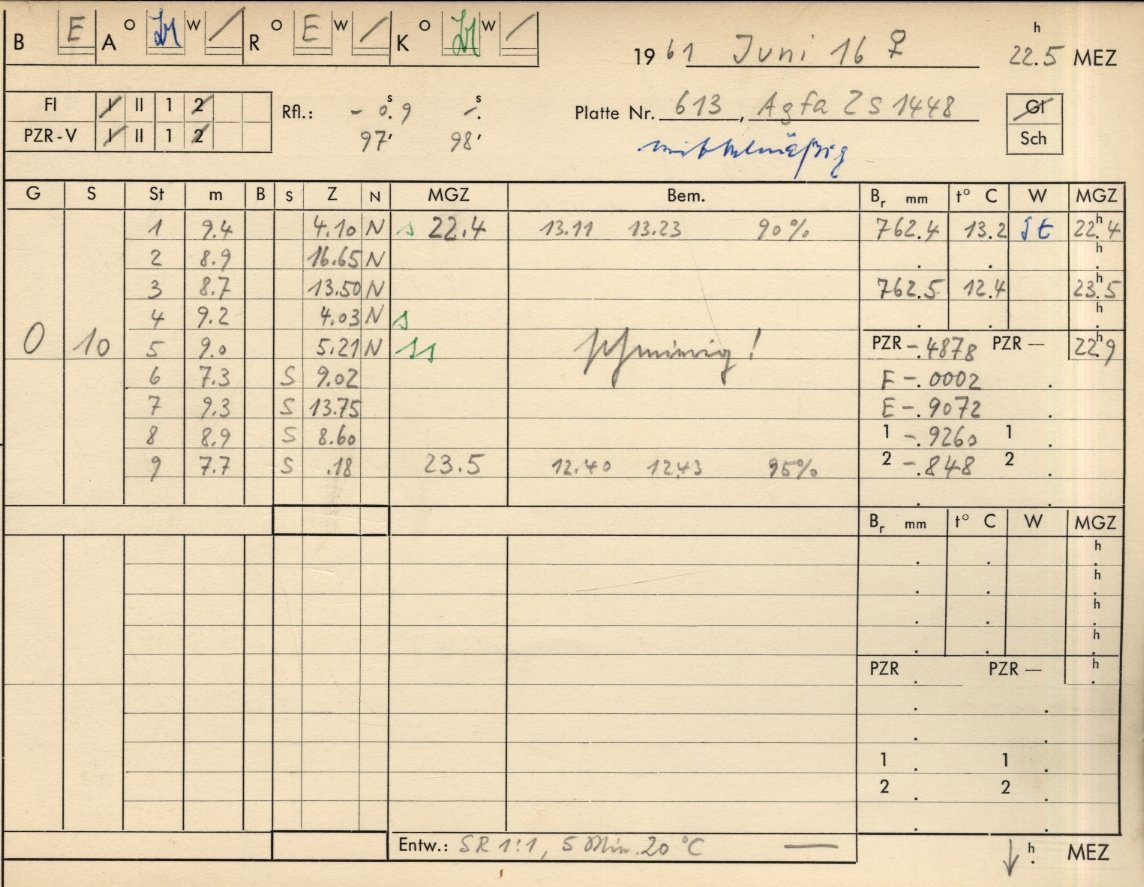 B E A O W / R O E W / K O W /
19 61 Juni 16 ♀ 22.5 h MEZ
FI I II 1 2
PZR-V I II 1 2
Rfl.: - 0.9 s -. s
97' 98'
Platte Nr. 613, Agfa ZS 1448
mittelmäßig
Gl
Sch
G S St m B S Z N MGZ Bem. Br mm t° C W MGZ
1 9.4 4.10 N s 22.4 13.11 13.23 90% 762.4 13.2 St 22.4 h
2 8.9 16.65 N . . h
3 8.7 13.50 N 762.5 12.4 23.5 h
4 9.2 4.03 N s . . h
0 10 5 9.0 5.21 N ss schmierig! PZR -.4878 PZR — 22.9 h
6 7.3 S 9.02 F -.0002 .
7 9.3 S 13.75 E -.9072 .
8 8.9 S 8.60 1 -.9260 1 .
9 7.7 S .18 23.5 12.40 12.43 95% 2 -.848 2 .
Br mm t° C W MGZ
. . h
. . h
. . h
. . h
PZR . PZR — h
. .
. .
1 . 1 .
2 . 2 .
Entw.: SR 1:1, 5 Min. 20 °C —
h MEZ